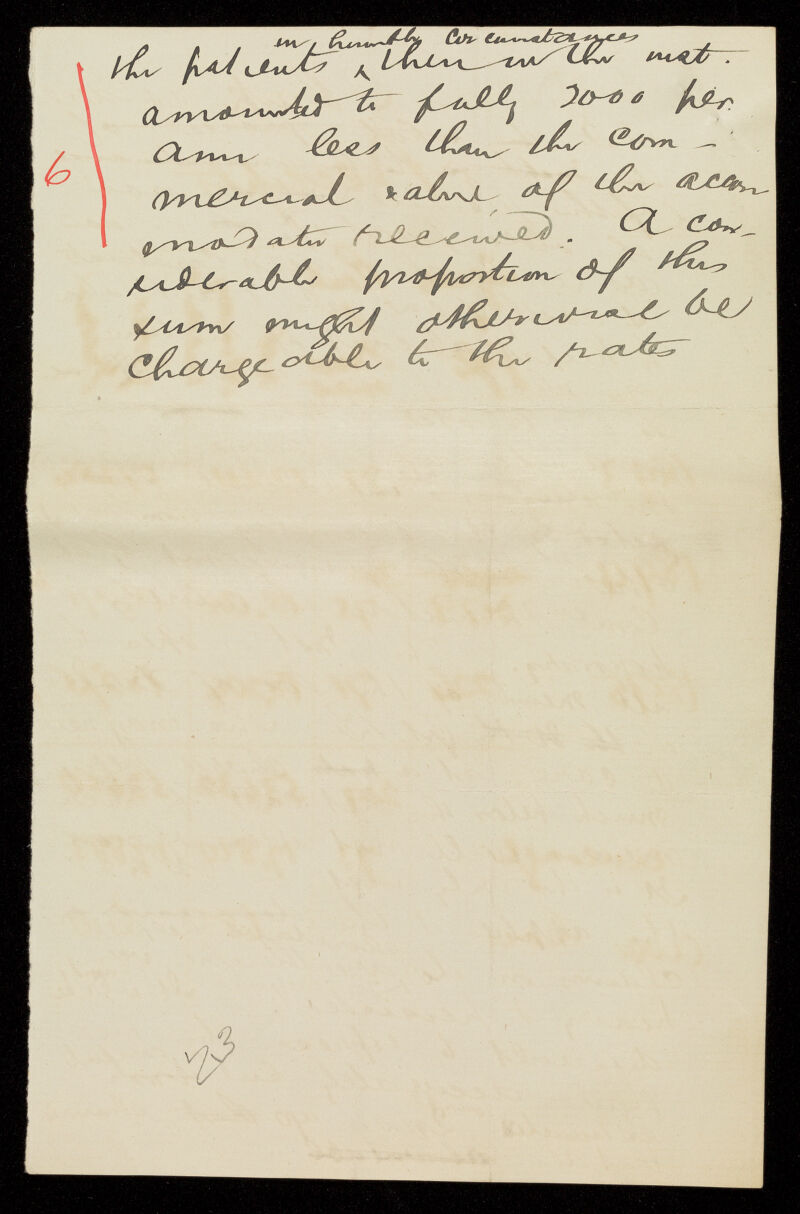 in humble circumstances
the patients ‸ then in the inst.
amounted to fully 2000 per.
ann less than the com-
6
mercial value of the accom
modatn received. A con-
siderable proportion of this
sum might otherwise be
chargeable to the rates
23